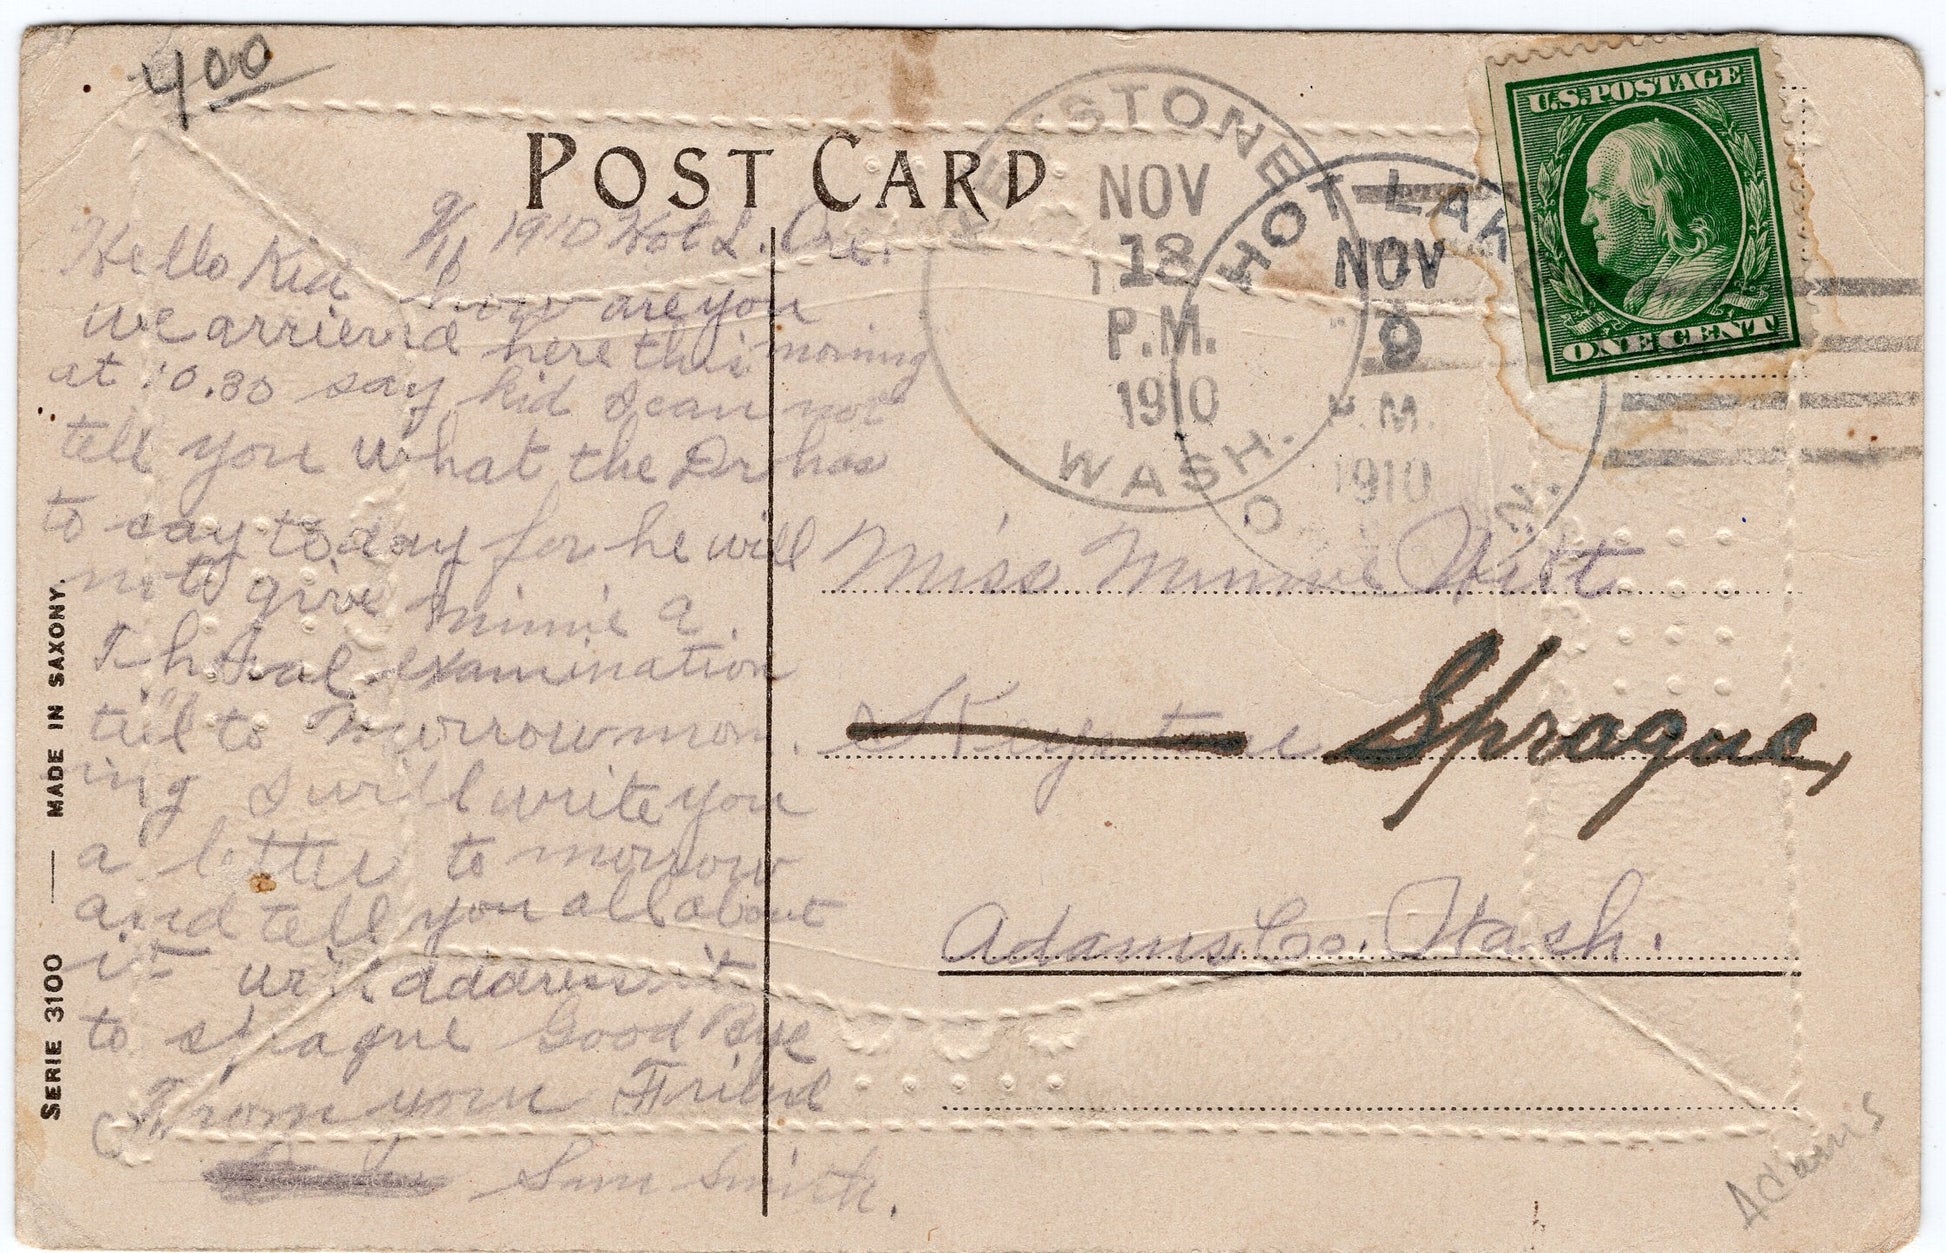 4 00
POST CARD
U.S. POSTAGE
ONE CENT
KEYSTONE
NOV
12
P.M.
1910
WASH.
HOT LAK
NOV
9
P.M.
1910
O N.
9/11 1910 Hot L. Ore.
Hello Kid how are you
we arrieved here this morning
at 10.30 say kid I can not
tell you what the Dr has
to say to day for he will
not give Minnie a
Thoral examination
till to murrow morn.
ing I will write you
a letter to morrow
and tell you all about
it will address it
to sprague Good Bye
From your Friend
Smith.
Miss Minnie Wilt
Keystone Sprague,
Adams, Co. Wash.
Adams
SERIE 3100 — MADE IN SAXONY.